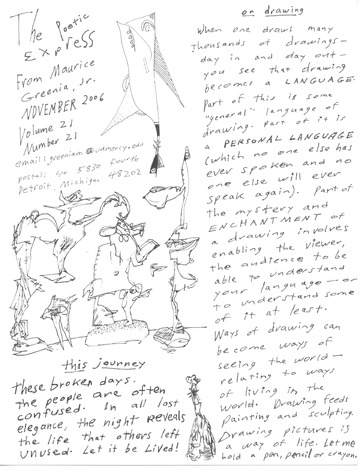 The Poetic
Express
From Maurice
Greenia, Jr.
NOVEMBER 2006
Volume 21
Number 21
email: greeniam@udmercy.edu
postal: 40 5830 Fourth
Detroit, Michigan 48202
on drawing
When one draws many
thousands of drawings—
day in and day out—
you see that drawing
becomes a LANGUAGE.
Part of this is some
"general" language of
drawing. Part of it is
a PERSONAL LANGUAGE
(which no one else has
ever spoken and no
one else will ever
speak again). Part of
the mystery and
ENCHANTMENT of
a drawing involves
enabling the viewer,
the audience to be
able to understand
your language—or
to understand some
of it at least.
Ways of drawing can
become ways of
seeing the world—
relating to ways
of living in the
world. Drawing feeds
Painting and sculpting.
Drawing pictures is
a way of life. Let me
hold a pen, pencil or crayon.
this journey
These broken days.
The people are often
confused. In all lost
elegance, the night REVEALS
the life that others left
unused. Let it be Lived!